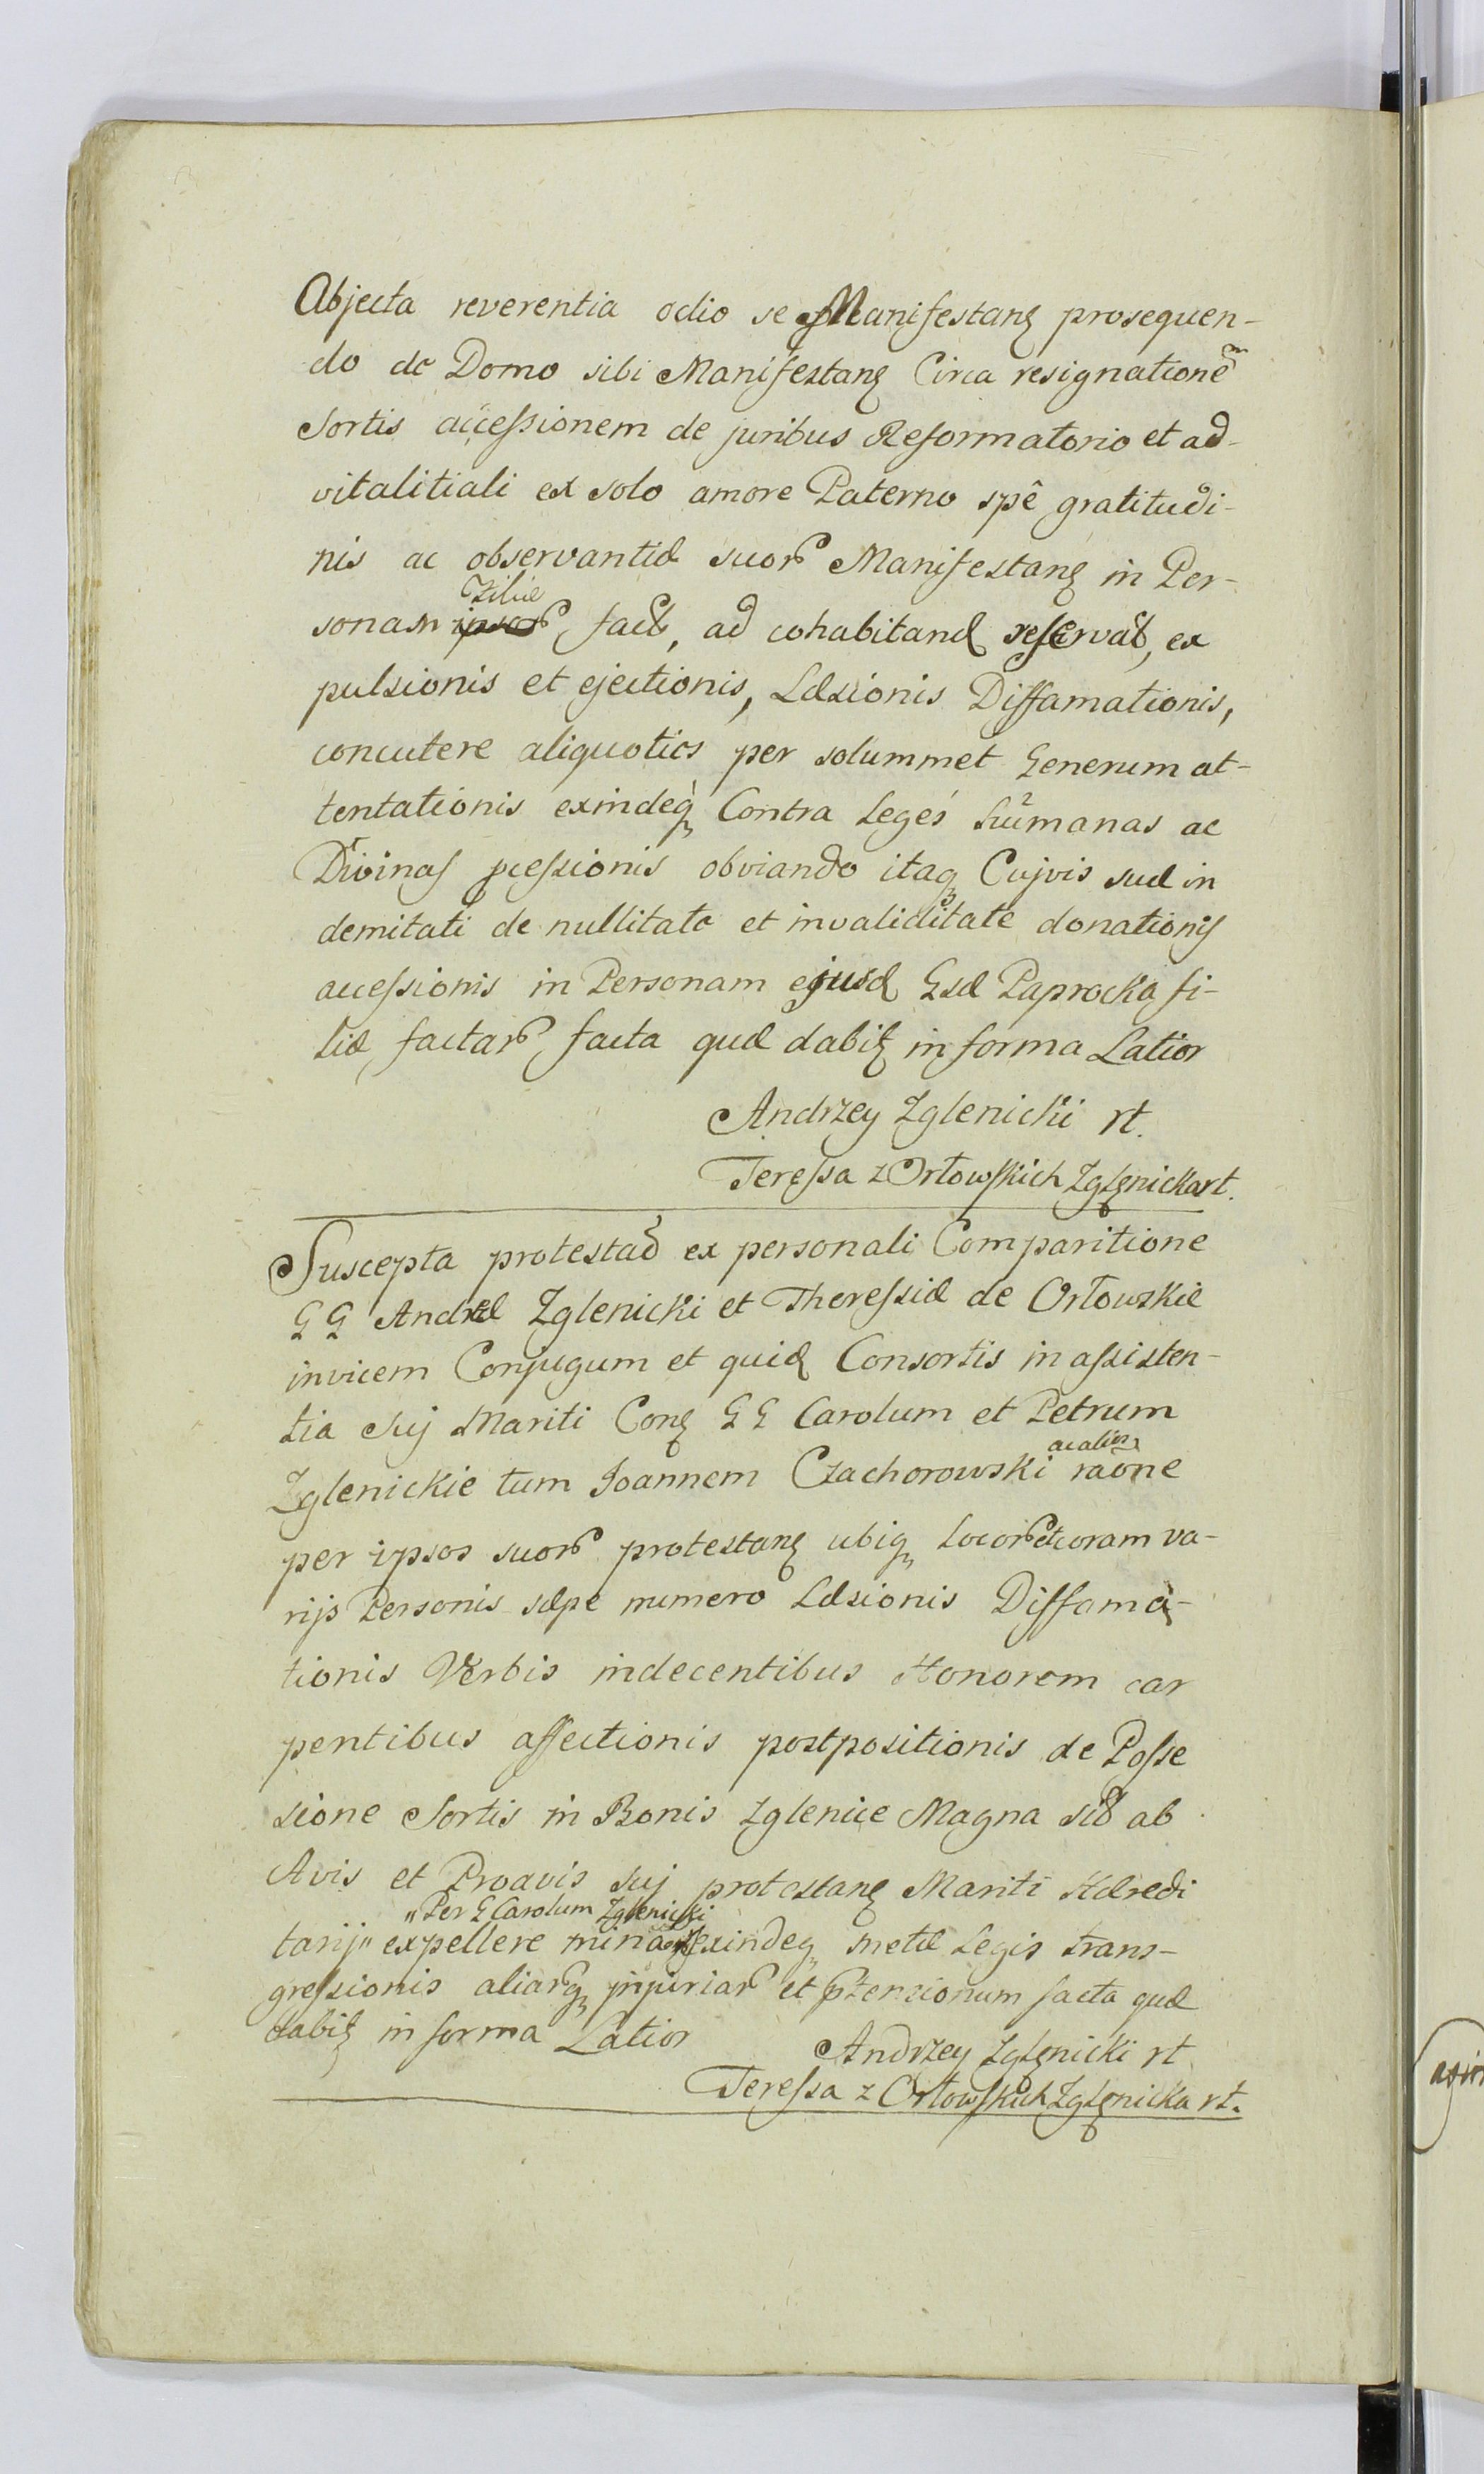 Abjecta reverentia odio se Manifestan prosequen-
do de Domo sibi Manifestan Circa resignationem
Sortis accessionem de juribus Reformatorio et ad-
vitalitiali ex solo amore Paterno spê gratitudi-
nis ac observantiæ suor Manifestan in Per-
Filiæ
sonam fact, ad cohabitand reservat, ex
pulsionis et ejectionis, Læsionis Diffamationis,
concutere aliquoties per solummet Generum at-
tentationis exindeq Contra Leges humanas ac
Divinas pcessionis obviando itaq Cujvis suæ in
demitati de nullitate et invaliditate donationis
accessionis in Personam ejusd Gsæ Paprocka fi-
liæ factar facta quæ dabit in forma Latior
Andrzey Zglenicki rt.
Teressa z Orłowskich Zglenicka rt.
Suscepta protestao ex personali Comparitione
G G Andreæ Zglenicki et Theressiæ de Orłowskie
invicem Conjugum et quid Consortis in assisten-
tia Suj Mariti Con G G Carolum et Petrum
ac alior
Zglenickie tum Joannem Czachorowski raõne
per ipsos suor protestan ubiq locor et coram va-
rijs Personis sæpe numero Læsionis Diffama-
tionis Verbis indecentibus Honorem car
pentibus affectionis postpositionis de Posse
sione Sortis in Bonis Zglenice Magna sit ab
Avis et Proavis suj protestan Mariti Hæredi
"Per G Carolum Zglenicki
tarij" expellere exindeq metæ Legis trans-
gressionis aliarq injuriar et ptensionum facta quæ
dabit in forma Latior
Andrzey Zglenicki rt
Teressa z Orłowskich Zglenicka rt.